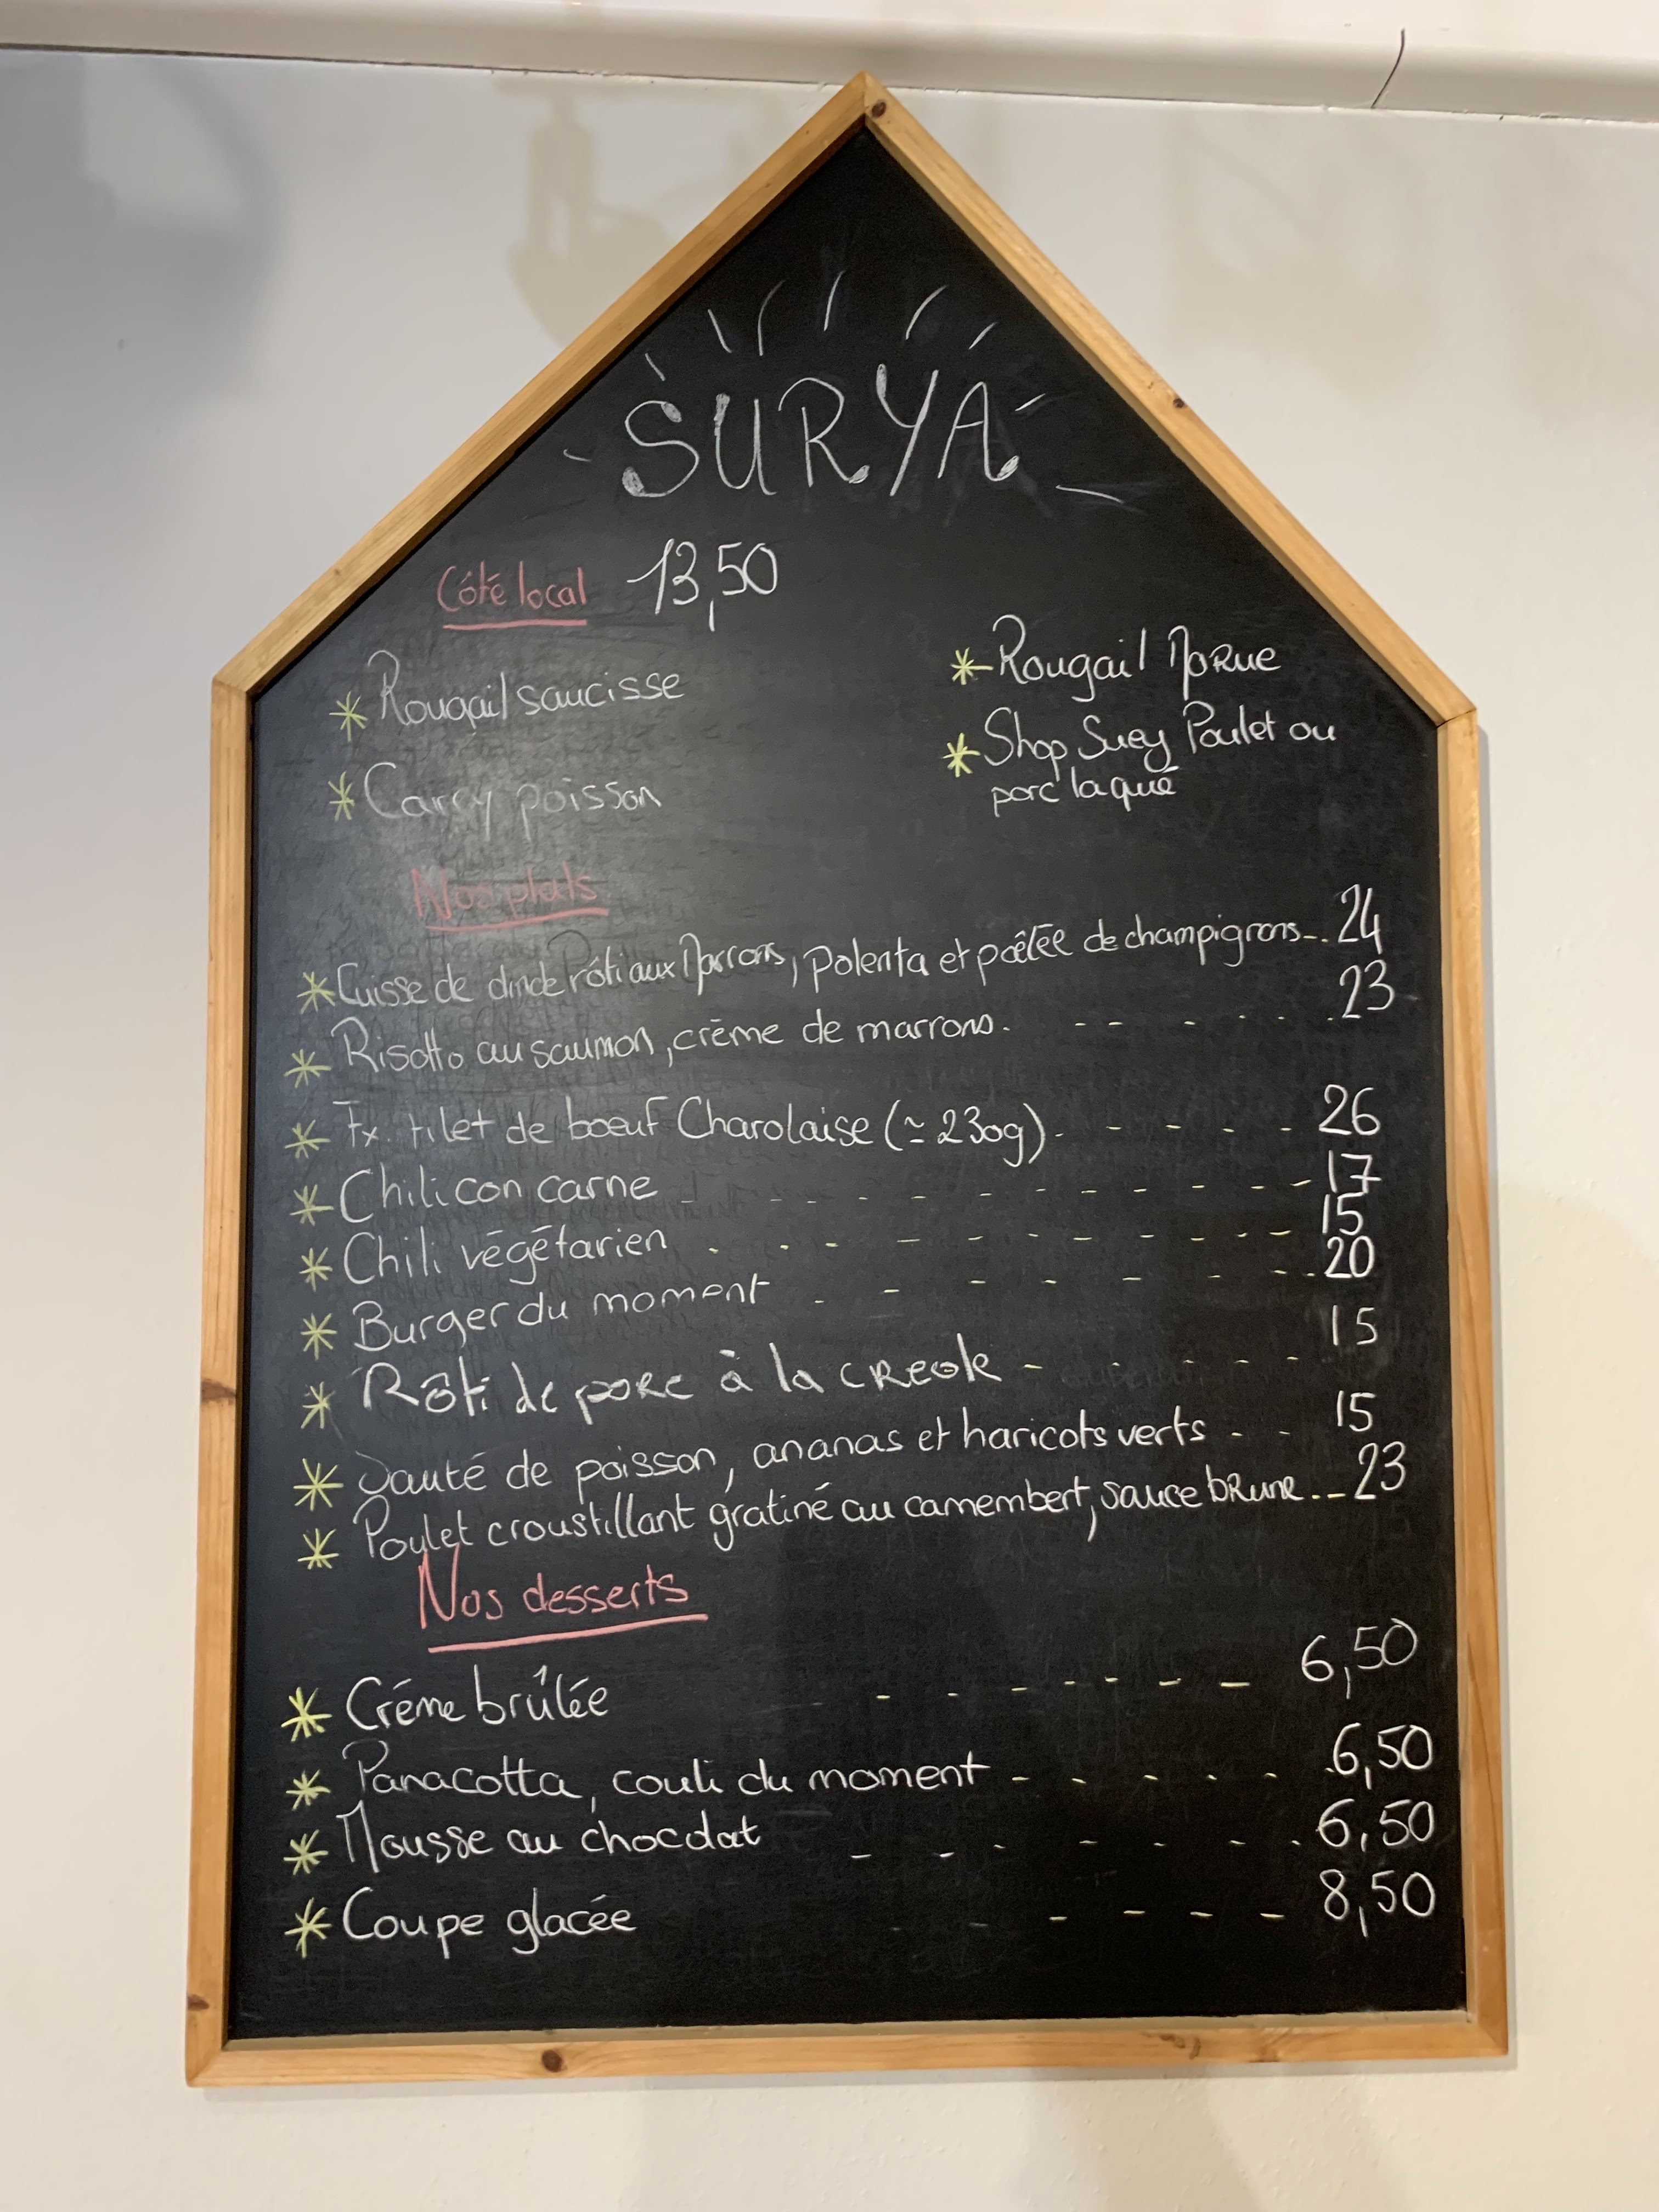 SURYA
Côté local 13,50
* Rougail saucisse
* Carry poisson
* Rougail Morue
* Shop Suey Poulet ou
porc laqué
Nos plats
* Cuisse de dinde rôti aux Marrons, polenta et poêlée de champignons 24
* Risotto au saumon, crème de marrons 23
* Fx. filet de boeuf Charolaise (≃ 230g) 26
* Chili con carne 17
* Chili végétarien 15
* Burger du moment 20
* Rôti de porc à la creole 15
* Sauté de poisson, ananas et haricots verts 15
* Poulet croustillant gratiné au camembert, sauce brune 23
Nos desserts
* Créme brûlée 6,50
* Panacotta, couli du moment 6,50
* Mousse au chocolat 6,50
* Coupe glacée 8,50